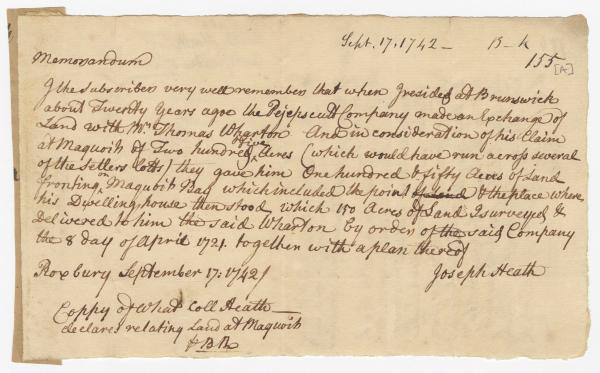 Sept. 17. 1742 - B-h
155 [A]
Memorandum
I the subscriber very well remember that when I resided at Brunswick
about Twenty Years agoe the Pejepscutt Company made an Exchange of
Land with Mr Thomas Wharton And in consideration of his Claim
at Maquoit of Two hundred & five Acres (which would have run across several
of the Setlers lotts) they gave him One hundred & fifty Acres of Land
fronting on Maquoit Bay which included the point of Land & the place where
his Dwelling house then stood, which 150 Acres of Land I surveyed &
delivered to him the said Wharton by order of the said Company
the 8 day of April 1721. together with a plan thereof
Roxbury September 17: 1742/
Joseph Heath
Coppy of What Coll Heath
declares relating Land at Maquoit